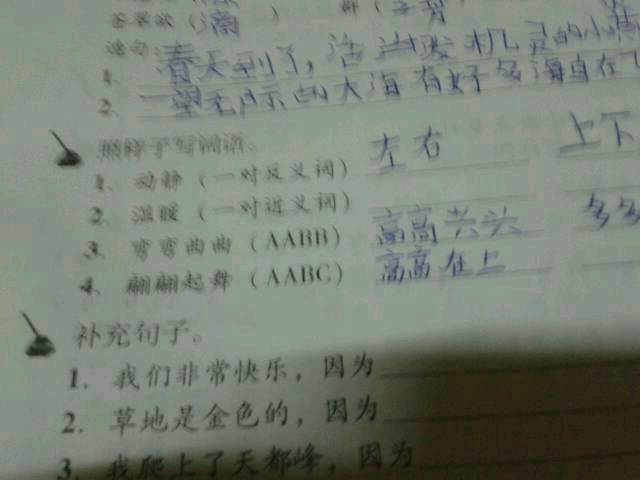 翠欲（滴）
造句
1. 春天到了，活泼 机灵的小
2. 一望无 的大海有好多海自在飞
照样子写词语。
1、动静（一对反义词） 左右 上下
2、温暖（一对近义词）
3、弯弯曲曲（AABB） 高高 多多
4、翩翩起舞（AABC） 高高在上
补充句子。
1. 我们非常快乐，因为
2. 草地是金色的，因为
3. 我爬上了天都峰，因为